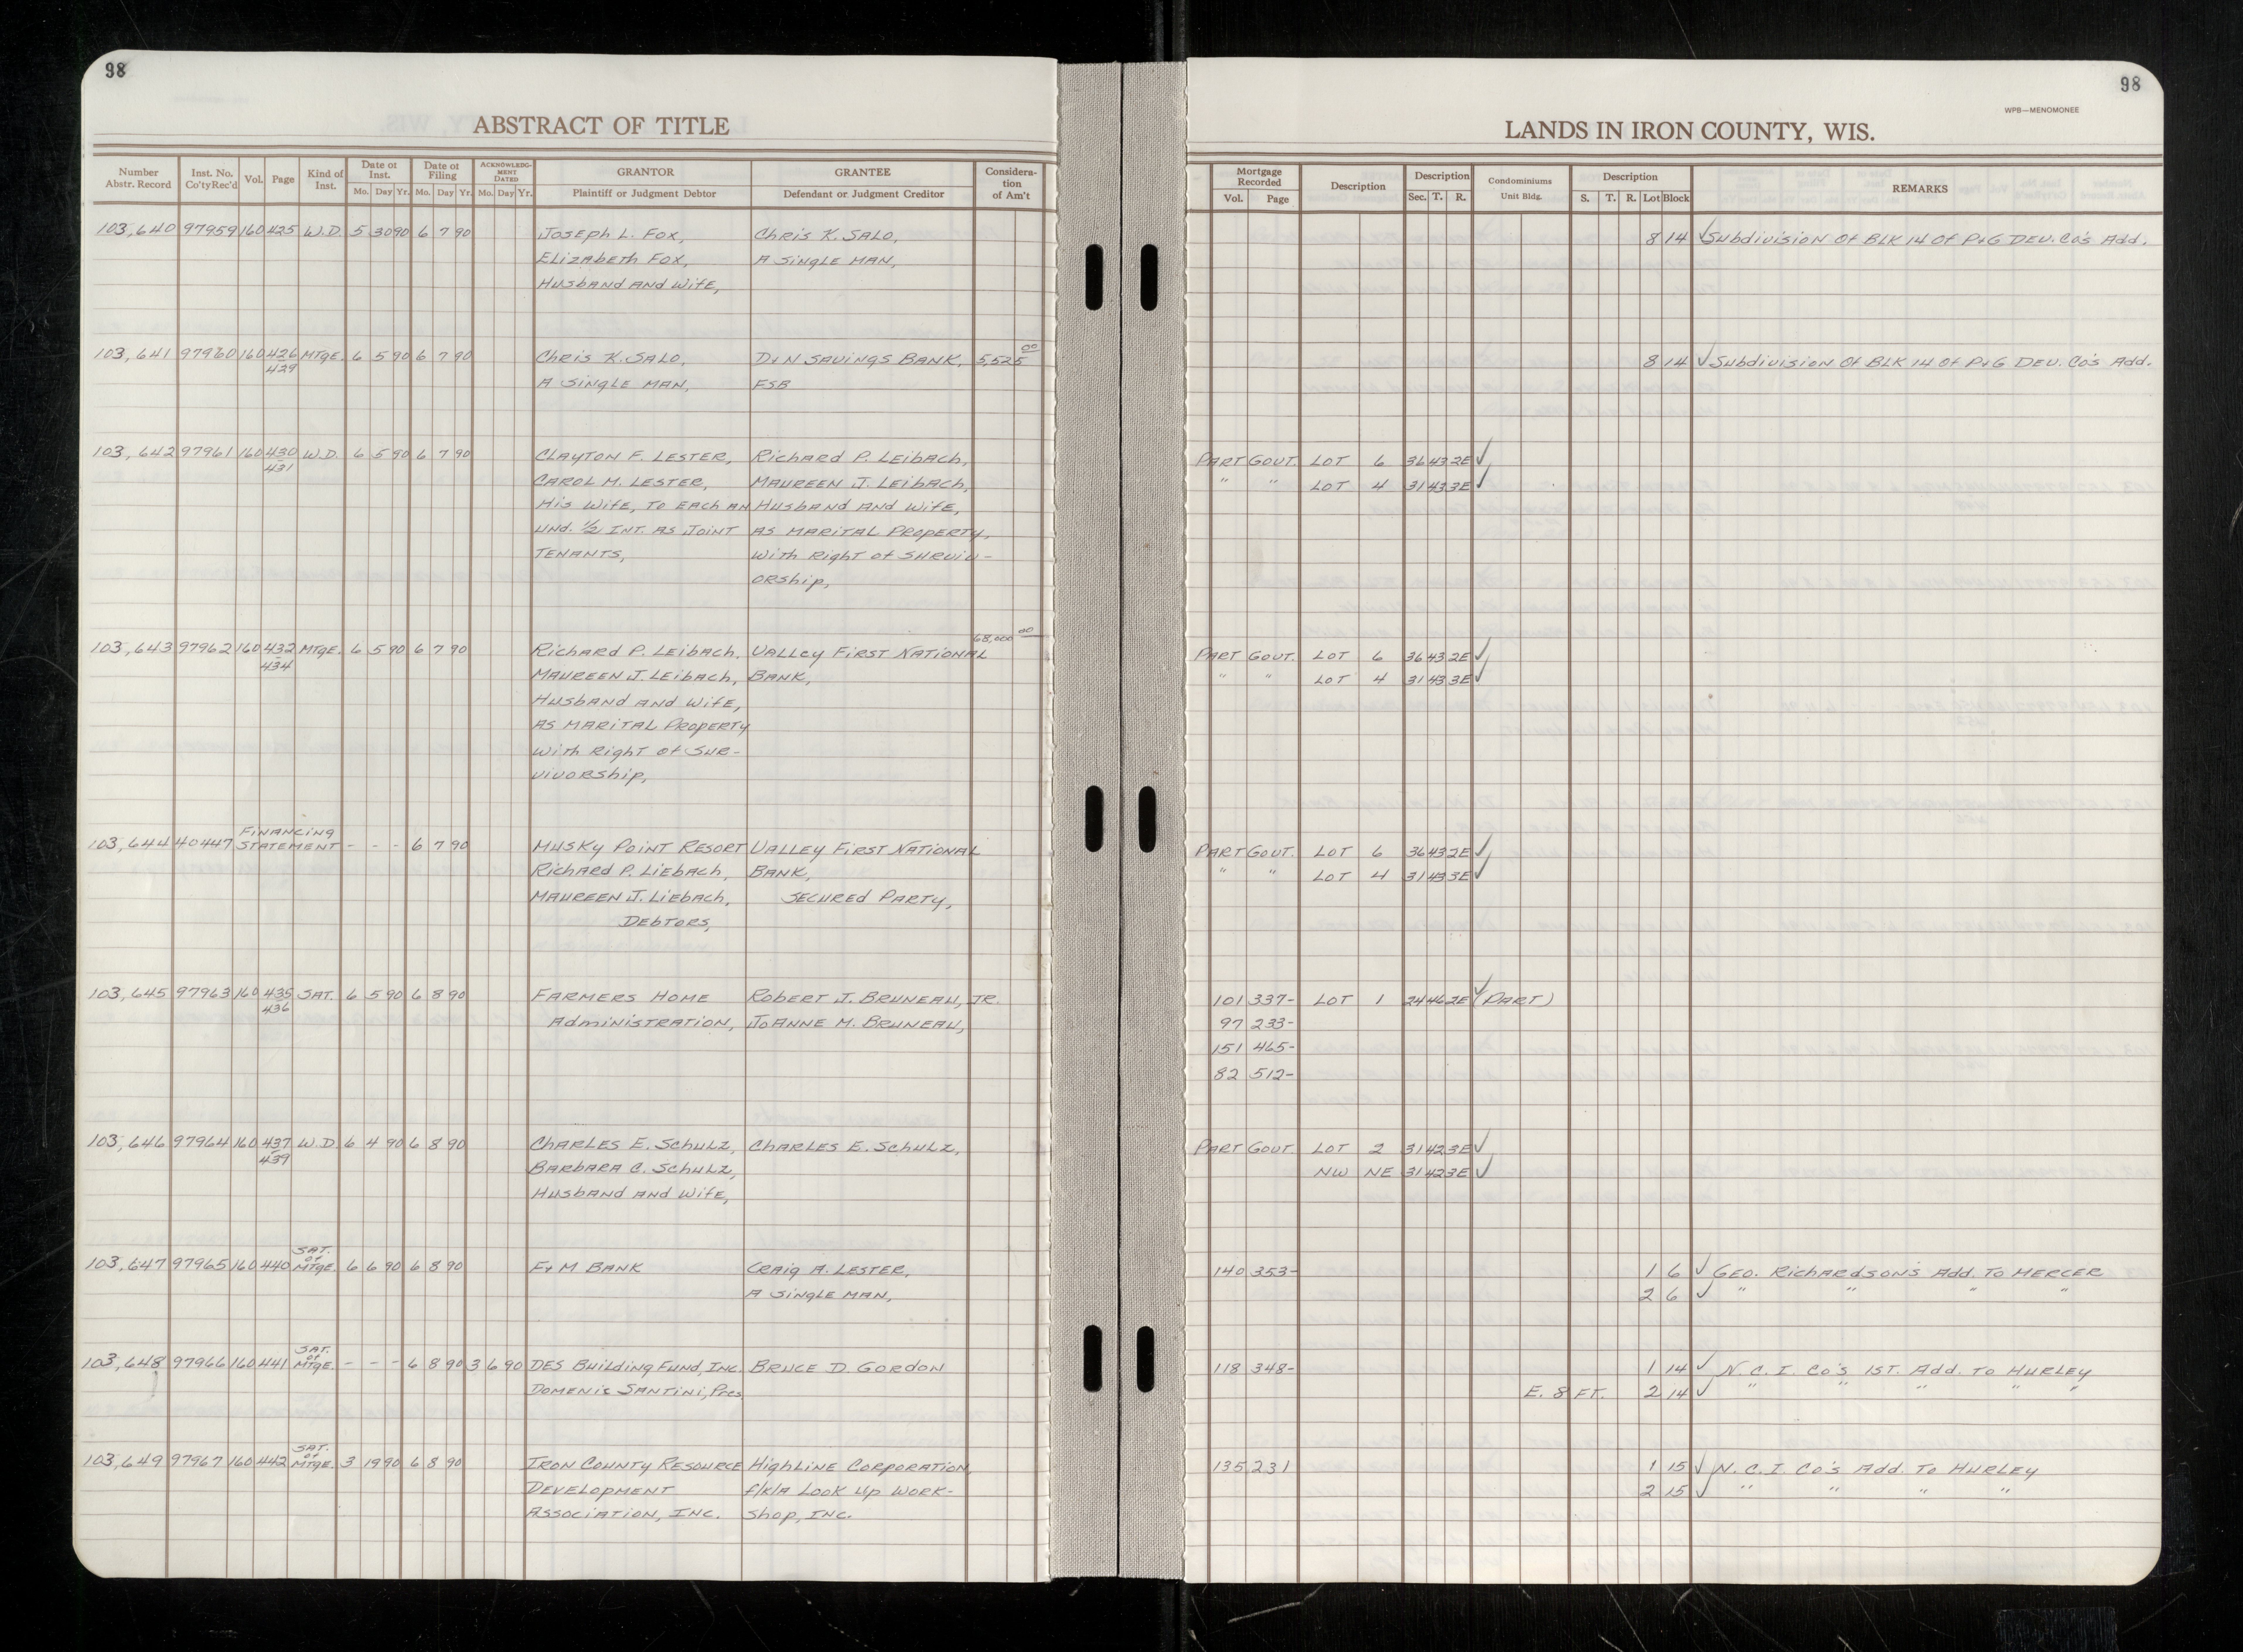 98
ABSTRACT OF TITLE
Number Abstr. Record | Inst. No. Co'ty Rec'd | Vol. | Page | Kind of Inst. | Date of Inst. Mo. Day Yr. | Date of Filing Mo. Day Yr. | ACKNOWLEDGMENT DATED Mo. Day Yr. | GRANTOR Plaintiff or Judgment Debtor | GRANTEE Defendant or Judgment Creditor | Consideration of Am't
103,640 97959 160 425 W.D. 5 30 90 6 7 90 Joseph L. Fox, Chris K. Salo,
Elizabeth Fox, A Single Man,
Husband and Wife,
103,641 97960 160 426 MTGE. 6 5 90 6 7 90 Chris K. Salo, D+N Savings Bank, 5,525 00
429 A Single Man, FSB
103,642 97961 160 430 W.D. 6 5 90 6 7 90 Clayton F. Lester, Richard P. Leibach,
431 Carol M. Lester, Maureen J. Leibach,
His Wife, to Each an Husband and Wife,
Und. 1/2 Int. as Joint as Marital Property,
Tenants, With Right of Surviv-
orship,
68,000 00
103,643 97962 160 432 MTGE. 6 5 90 6 7 90 Richard P. Leibach, Valley First National
434 Maureen J. Leibach, Bank,
Husband and Wife,
as Marital Property
With Right of Sur-
vivorship,
Financing
103,644 40447 Statement - - - 6 7 90 Musky Point Resort Valley First National
Richard P. Liebach, Bank,
Maureen J. Liebach, Secured Party,
Debtors,
103,645 97963 160 435 SAT. 6 5 90 6 8 90 Farmers Home Robert J. Bruneau, Jr.
436 Administration, JoAnne M. Bruneau,
103,646 97964 160 437 W.D. 6 4 90 6 8 90 Charles E. Schulz, Charles E. Schulz,
439 Barbara C. Schulz,
Husband and Wife,
SAT.
of
103,647 97965 160 440 MTGE. 6 6 90 6 8 90 F+M Bank Craig A. Lester,
A Single Man,
SAT.
of
103,648 97966 160 441 MTGE. - - - 6 8 90 3 6 90 DES Building Fund, Inc. Bruce D. Gordon
Domenic Santini, Pres.
SAT.
of
103,649 97967 160 442 MTGE. 3 19 90 6 8 90 Iron County Resource Highline Corporation,
Development f/k/a Look Up Work-
Association, Inc. shop, Inc.
98
WPB—MENOMONEE
LANDS IN IRON COUNTY, WIS.
Mortgage Recorded Vol. Page | Description | Description Sec. T. R. | Condominiums Unit Bldg. | Description S. T. R. Lot Block | REMARKS
8 14 ✓ Subdivision of BLK 14 of P+G Dev. Co's Add.
8 14 ✓ Subdivision of BLK 14 of P+G Dev. Co's Add.
Part Govt. Lot 6 36 43 2E ✓
" " Lot 4 31 43 3E ✓
Part Govt. Lot 6 36 43 2E ✓
" " Lot 4 31 43 3E ✓
Part Govt. Lot 6 36 43 2E ✓
" " Lot 4 31 43 3E ✓
101 337- Lot 1 24 46 2E ✓ (Part)
97 233-
151 465-
82 512-
Part Govt Lot 2 31 42 3E ✓
NW NE 31 42 3E ✓
140 353- 1 6 ✓ Geo. Richardson's Add. To Mercer
2 6 ✓ " " " "
118 348- 1 14 ✓ N.C.I. Co's 1st. Add. To Hurley
E. 8 Ft. 2 14 ✓ " " " " "
135 231 1 15 ✓ N.C.I. Co's Add. To Hurley
2 15 ✓ " " " "